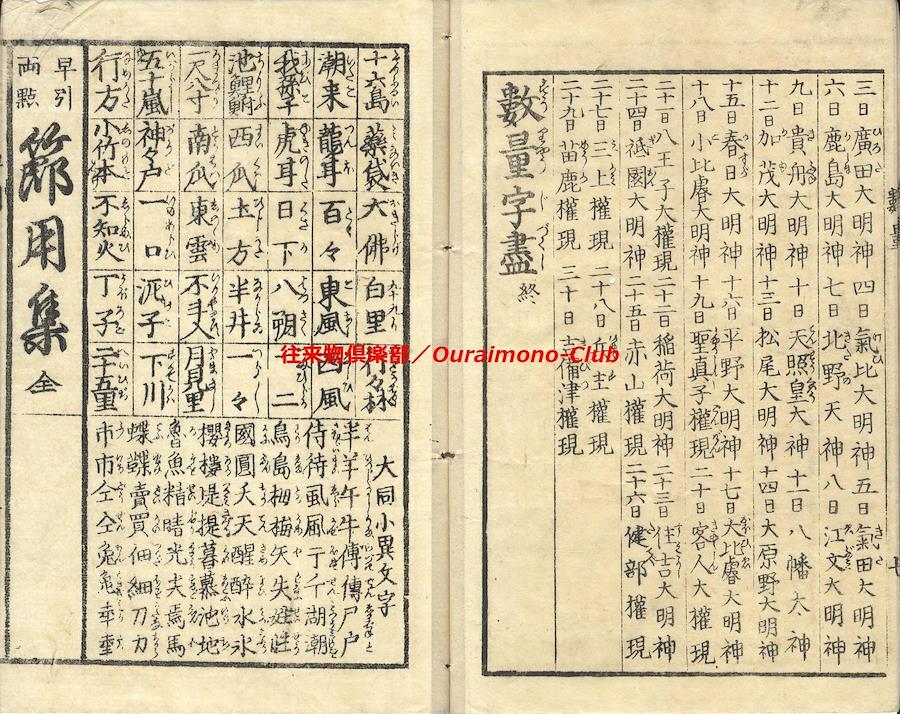 三日 廣田大明神 四日 氣比大明神 五日 氣田大明神
六日 鹿島大明神 七日 北野天神 八日 江文大明神
九日 貴舟大明神 十日 天照皇大神 十一日 八幡大神
十二日 加茂大明神 十三日 松尾大明神 十四日 大原野大明神
十五日 春日大明神 十六日 平野大明神 十七日 大比睿大明神
十八日 小比睿大明神 十九日 聖真子權現 二十日 客人大權現
二十一日 八王子大權現 二十二日 稲荷大明神 二十三日 住吉大明神
二十四日 祗園大明神 二十五日 赤山權現 二十六日 健部權現
二十七日 三上權現 二十八日 兵主權現
二十九日 苗鹿權現 三十日 吉備津權現
數量字盡 終
數量
往来物倶楽部／Ouraimono-Club
十六島 藥袋 大佛 白里 行々林
潮来 龍耳 百々 東風 西風
我孫子 虎耳 日下 八朔 二
池鯉鮒 西瓜 土方 半井 一々
一尺八寸 南瓜 東雲 不入 月見里
五十嵐 神戸 一口 泥子 下川
行方 小竹 不知火 丁子 二十五里
大同小異文字
半羊午牛傳傅尸戸
侍待虱風于千湖潮
鳥島栂梅矢失姓性
國圓夭天醒醉水氷
櫻樓堤提暮慕池地
魯魚精晴光焉馬
蝶賣買佃細刀力
市市仝兔龜
早引
両點
節用集 全